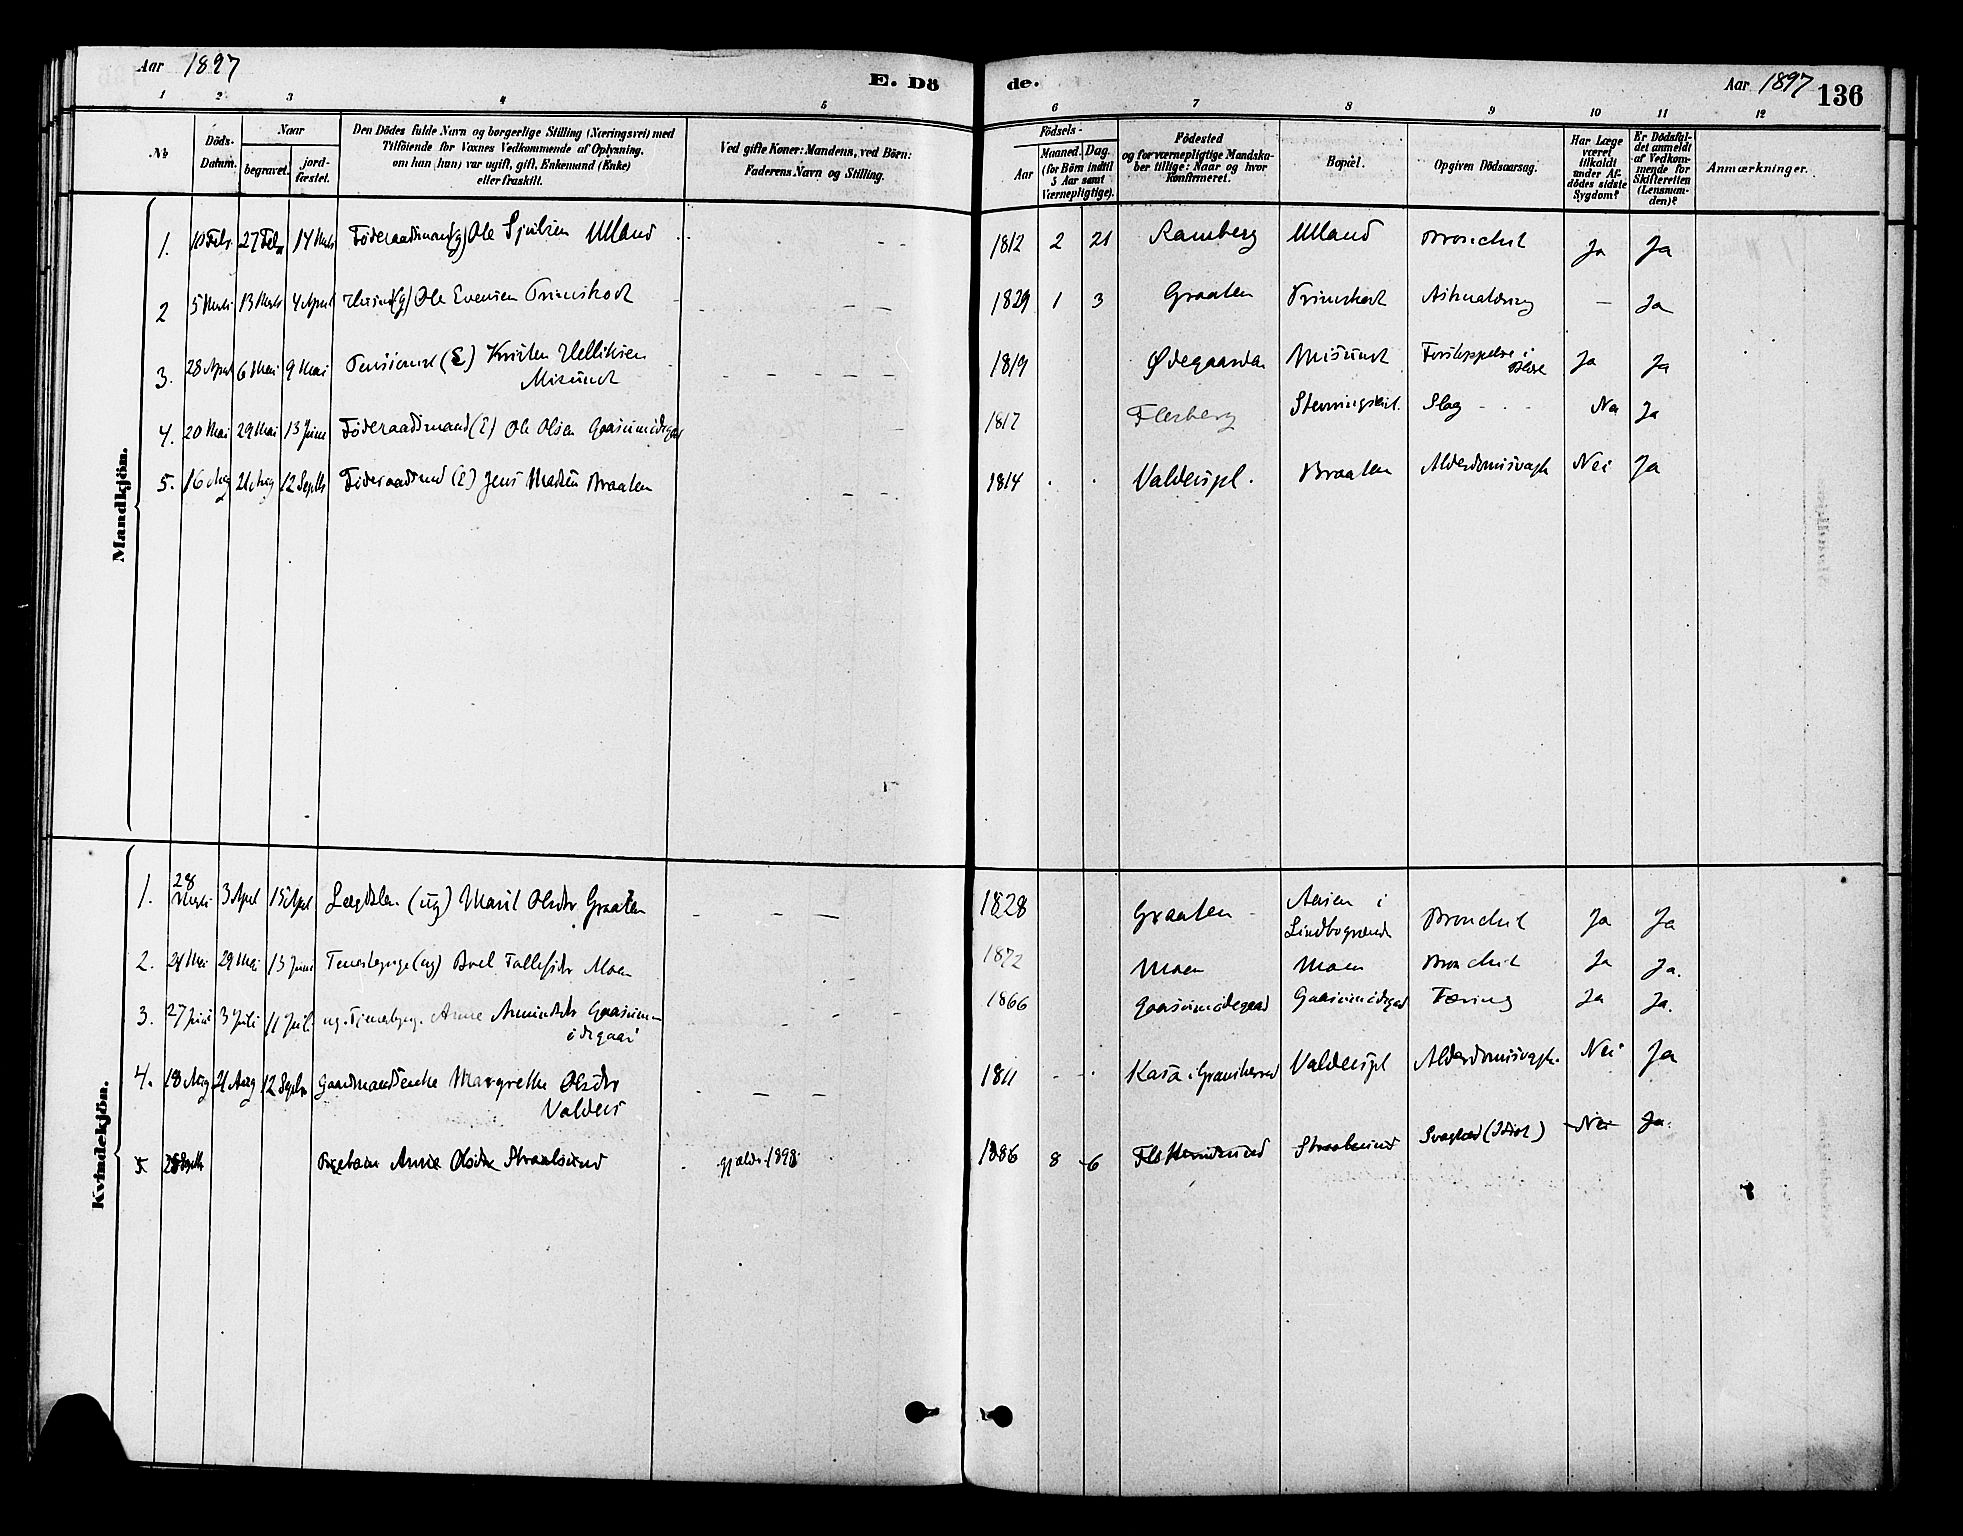 Aar 1897
E. Dö
de.
Aar 1897 136
1 2 3 4 5 6 7 8 9 10 11 12
№
Döds-
Datum.
Naar
begravet.
jord-
fæstet.
Den Dödes fulde Navn og borgerlige Stilling (Næringsvei) med
Tilföiende for Voxnes Vedkommende af Oplysning,
om han (hun) var ugift, gift, Enkemand (Enke)
eller fraskilt.
Ved gifte Koner: Mandens, ved Börn:
Faderens Navn og Stilling.
Födsels-
Aar
Maaned. Dag.
(for Börn indtil
5 Aar samt
Værnepligtige).
Födested
og for værnepligtige Mandska-
ber tillige: Naar og hvor
Konfirmeret.
Bopæl.
Opgiven Dödsaarsag.
Har Læge
været
tilkaldt
under Af-
dödes sidste
Sygdom?
Er Dödsfal-
det anmeldt
af Vedkom-
mende for
Skifteretten
(Lensman-
den)?
Anmærkninger.
Mandkjön.
1. 10 Febr. 27 Febr 14 Marts Föderaadsmand (g) Ole Sjulsen Ulland - - 1812 2 21 Ramberg Ulland Bronchit Ja Ja
2 5 Marts 13 Marts 4 April (g) Ole Evensen - - - 1829 1 3 Graaten - Ja
3. 28 April 6 Mai 9 Mai (E) Kristen Helliksen
Misund - - - - - 1819 Ødegaarden Misund Forstoppelse i
Blære Ja Ja
4. 20 Mai 29 Mai 13 Juni Föderaadsmand (E) Ole Olsen - 1817 Flesberg Slag - - Nei Ja
5. 16 Aug 21 Aug 12 Septb Föderaadsmd (E) Jens Madsen Braaten - - 1814 . . Valderspl. Braaten Alderdomssvagh Nei Ja
Kvindekjön.
1. 28
Marts 3 April 15 April Lægdslem (ug) Marit Olsdtr Graaten - - - 1828 Graaten - Aasen i
Lindbogrænde Bronchit Ja Ja
2. 21 Mai 29 Mai 13 Juni Tjenestepige (ug) Moen - - 1872 Moen Moen Bronchit Ja Ja.
3. 27 Juni 3 Juli 11 Juli. ug. Tjenestepig. Anne - - - - 1866 Tæring Ja Ja.
4. 18 Aug 21 Aug 12 Septb Gaardmandsenke Margrethe Olsdtr
Valders - - - 1811 - - Kasa i Gransherred Valderspl Alderdomssvagh. Nei Ja
5. 28 Septb Pigebarn Anne Olsdtr Straalsund - gjælder 1898 1886 8 6 Straalsund Svaghed (Idiot) Nei Ja.